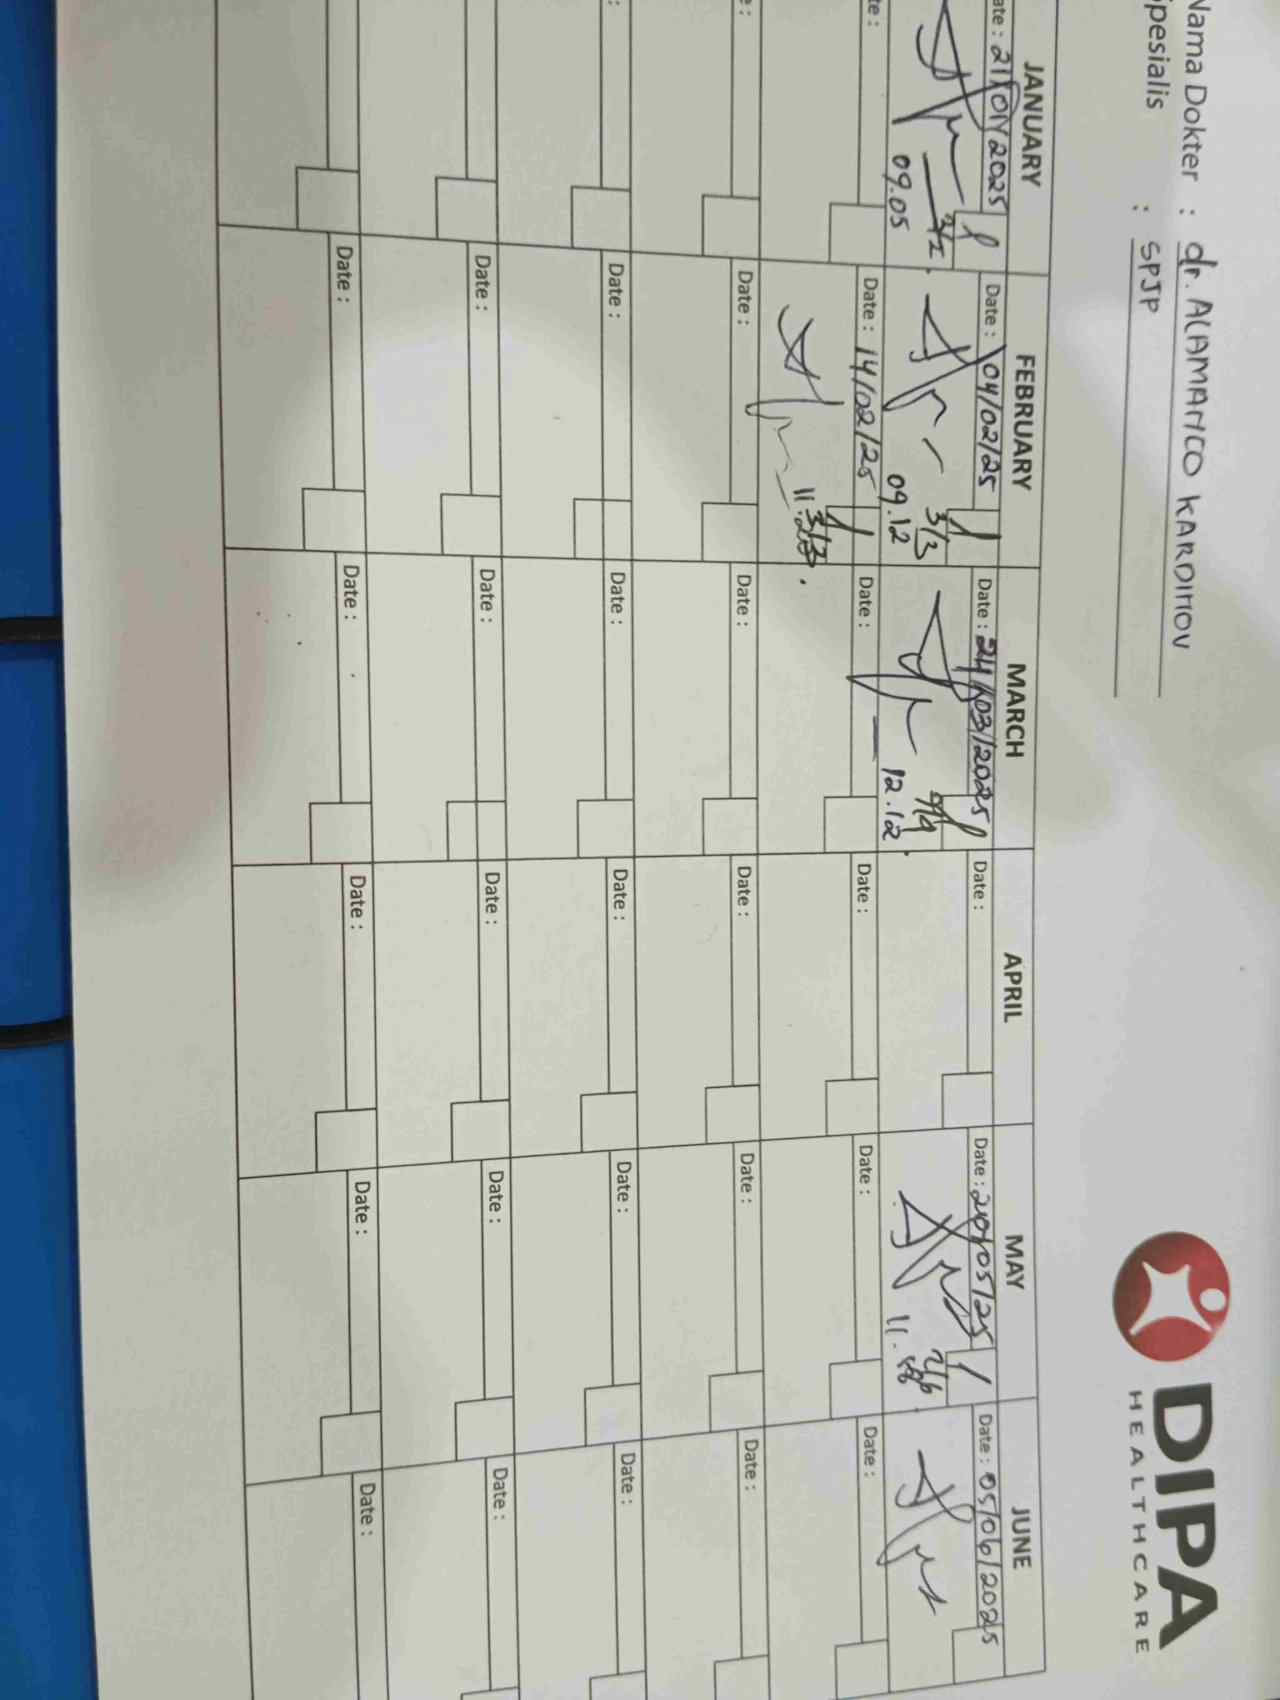 Nama Dokter : dr. ALAMANCO KARDINOV
Spesialis : SPJP
DIPA
HEALTHCARE
JANUARY FEBRUARY MARCH APRIL MAY JUNE
Date : 21/01/2025 Date : 04/02/25 Date : 24/03/2025 Date : Date : 20/05/25 Date : 05/06/2025
3/3
09.05 09.12 12.12 11.
Date : 14/02/25 Date : Date : Date : Date :
3/3
Date : Date : Date : Date : Date :
Date : Date : Date : Date : Date :
Date : Date : Date : Date : Date :
Date : Date : Date : Date : Date :